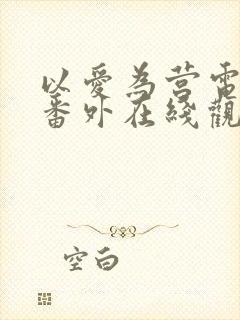 以愛為营電
番外在綫觀
空白